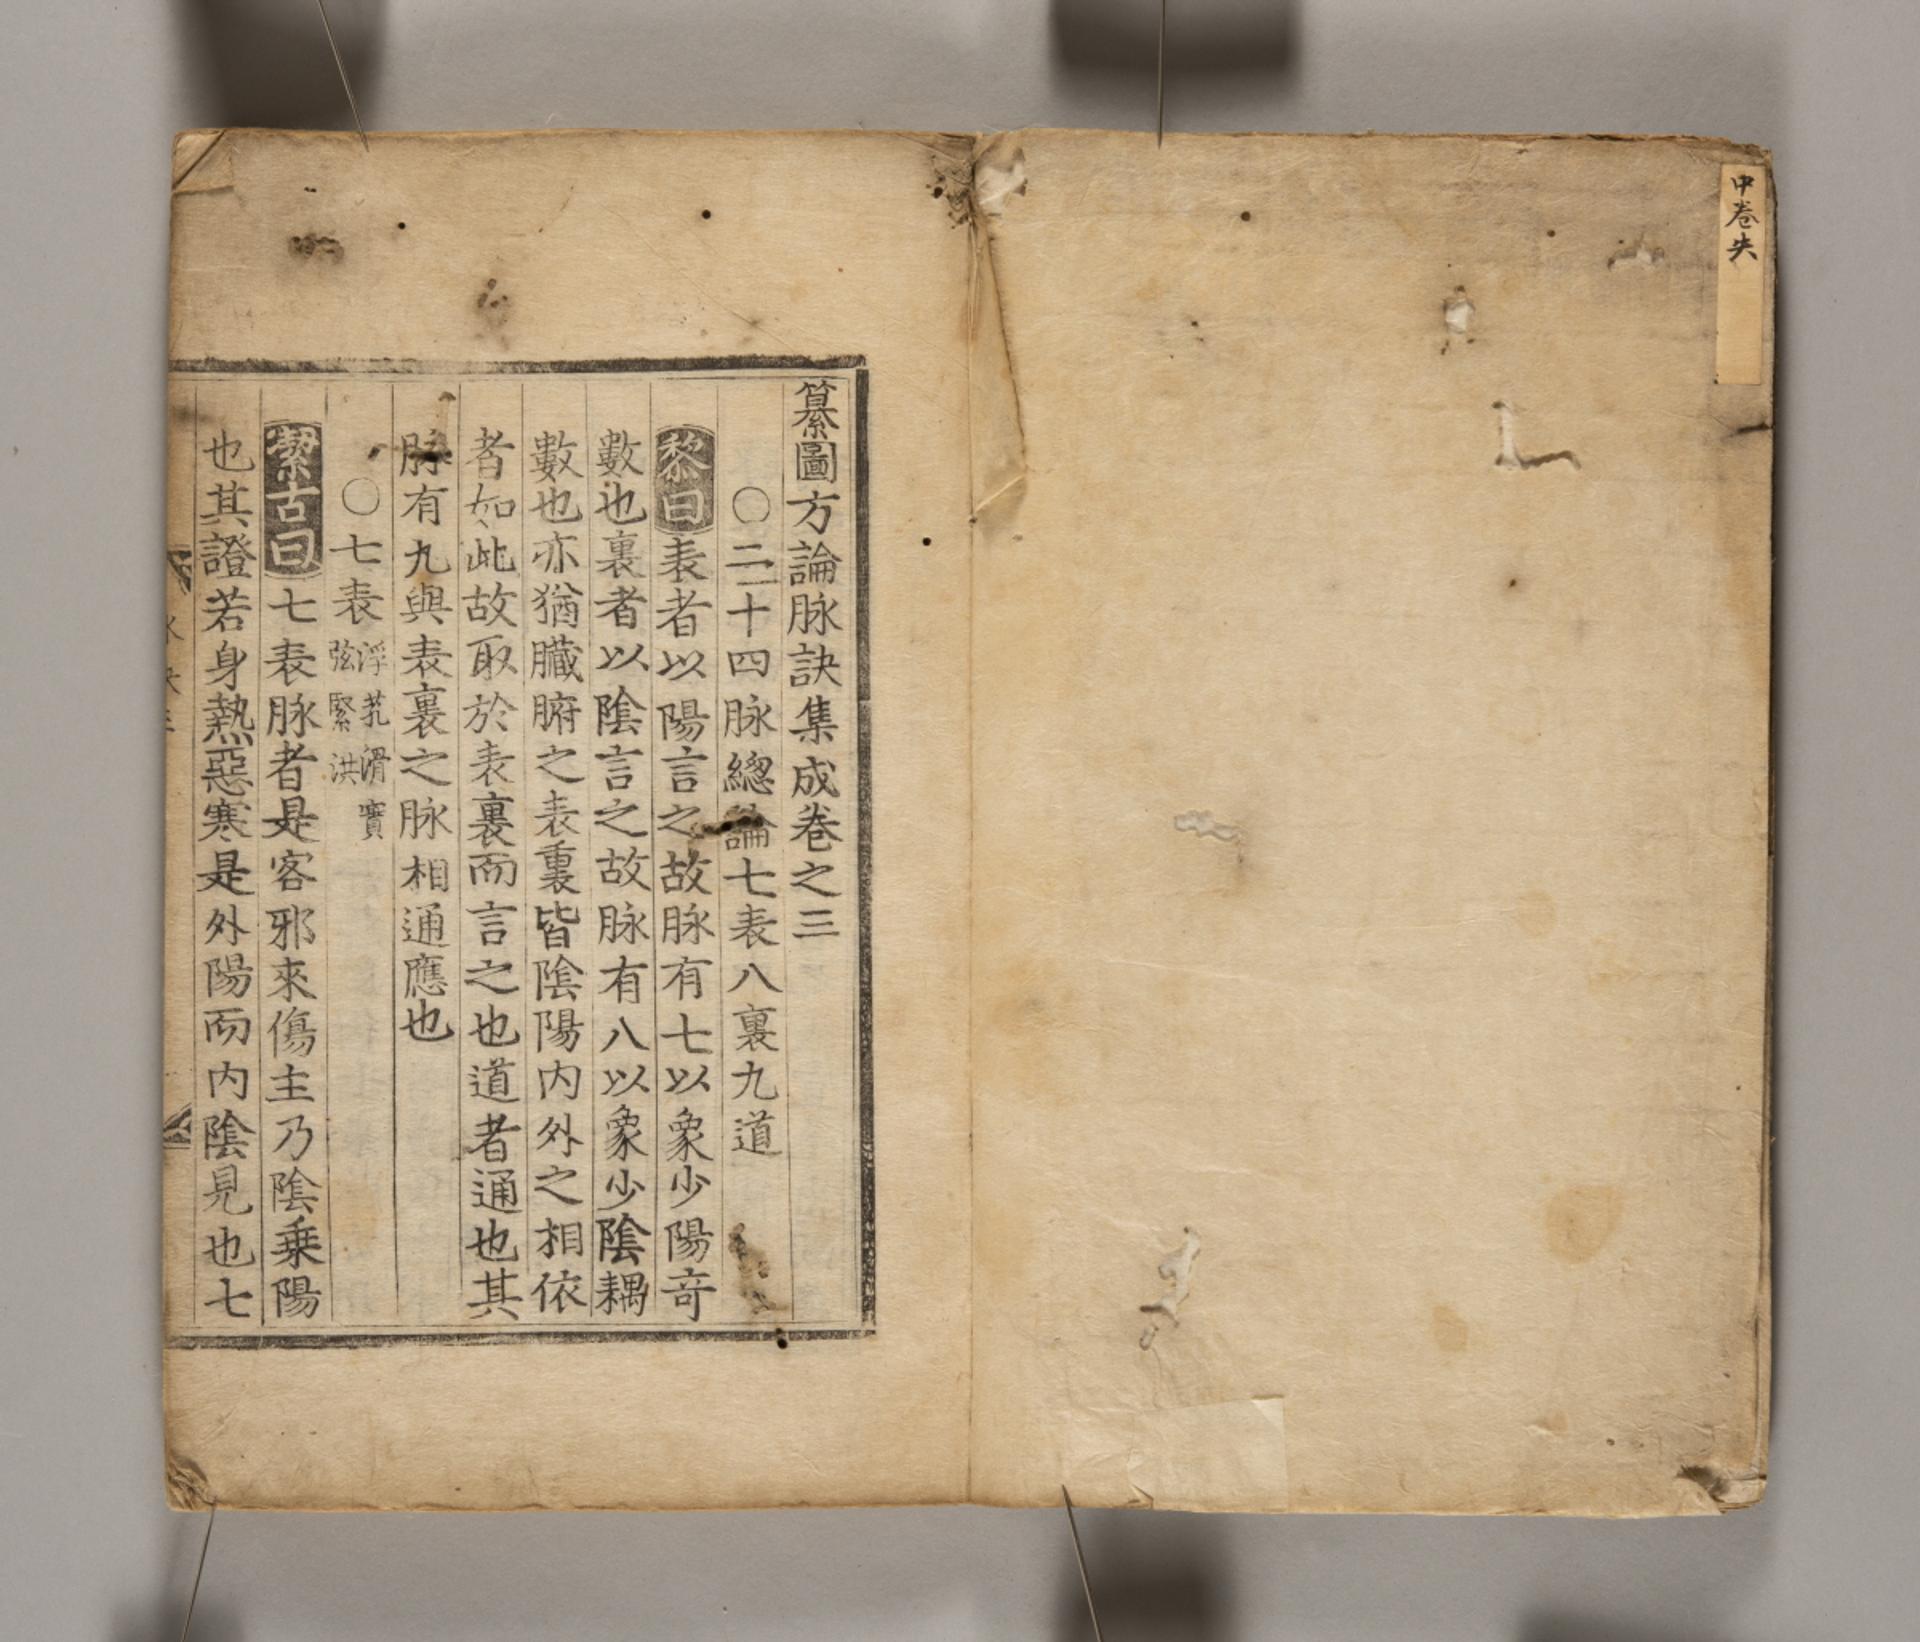 中卷失
纂圖方論脉訣集成卷之三
○二十四脉總論七表八裏九道
黎曰表者以陽言之故脉有七以象少陽竒
數也裏者以陰言之故脉有八以象少陰耦
數也亦猶臟腑之表裏皆陰陽内外之相依
者如此故取於表裏而言之也道者通也其
脉有九與表裏之脉相通應也
○七表浮芤滑實
弦緊洪
潔古曰七表脉者是客邪來傷主乃陰乗陽
也其證若身熱惡寒是外陽而内陰見也七